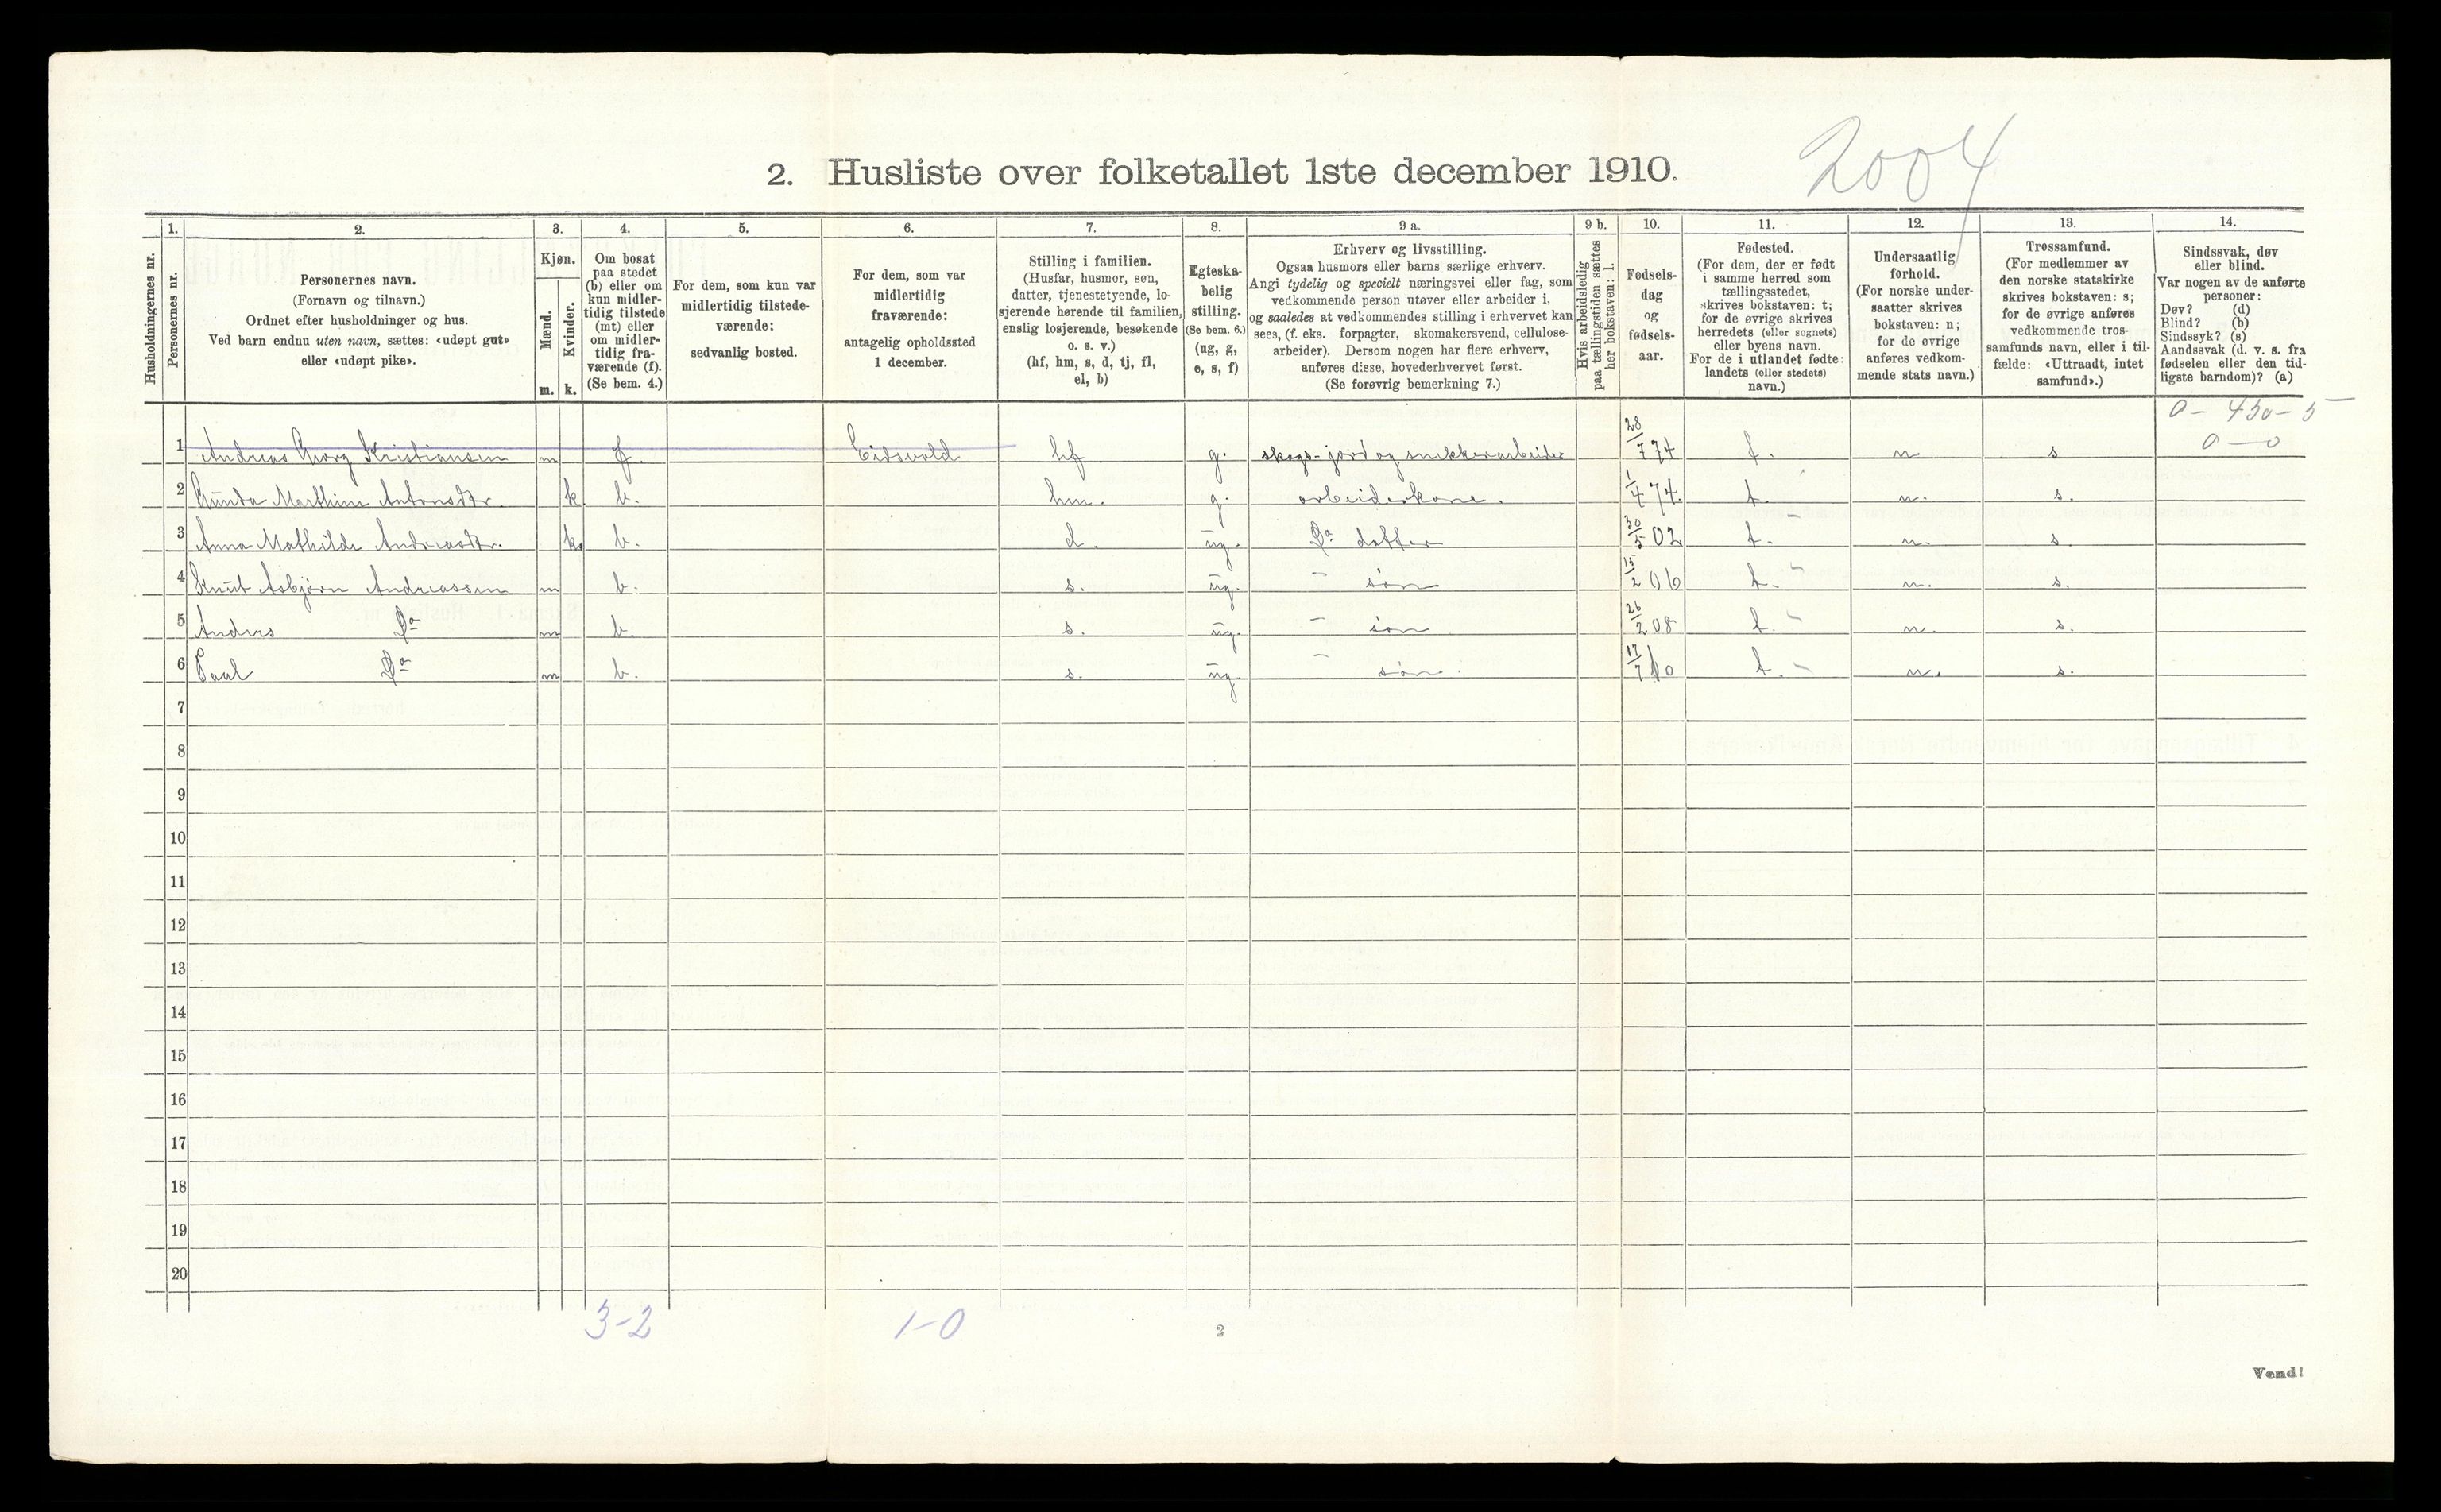 2004
2. Husliste over folketallet 1ste december 1910.
Husholdningernes nr.
1.
Personernes nr.
2.
Personernes navn.
(Fornavn og tilnavn.)
Ordnet efter husholdninger og hus.
Ved barn endnu uten navn, sættes: «udøpt gut»
eller «udøpt pike».
3.
Kjøn.
Mænd.
m.
Kvinder.
k.
4.
Om bosat
paa stedet
(b) eller om
kun midler-
tidig tilstede
(mt) eller
om midler-
tidig fra-
værende (f).
(Se bem. 4.)
5.
For dem, som kun var
midlertidig tilstede-
værende:
sedvanlig bosted.
6.
For dem, som var
midlertidig
fraværende:
antagelig opholdssted
1 december.
7.
Stilling i familien.
(Husfar, husmor, søn,
datter, tjenestetyende, lo-
sjerende hørende til familien,
enslig losjerende, besøkende
o. s. v.)
(hf, hm, s, d, tj, fl,
el, b)
8.
Egteska-
belig
stilling.
(Se bem. 6.)
(ug, g,
e, s, f)
9 a.
Erhverv og livsstilling.
Ogsaa husmors eller barns særlige erhverv.
Angi tydelig og specielt næringsvei eller fag, som
vedkommende person utøver eller arbeider i,
og saaledes at vedkommendes stilling i erhvervet kan
sees, (f. eks. forpagter, skomakersvend, cellulose-
arbeider). Dersom nogen har flere erhverv,
anføres disse, hovederhvervet først.
(Se forøvrig bemerkning 7.)
9 b.
Hvis arbeidsledig
paa tællingstiden sættes
her bokstaven: l.
10.
Fødsels-
dag
og
fødsels-
aar.
11.
Fødested.
(For dem, der er født
i samme herred som
tællingsstedet,
skrives bokstaven: t;
for de øvrige skrives
herredets (eller sognets)
eller byens navn.
For de i utlandet fødte:
landets (eller stedets)
navn.)
12.
Undersaatlig
forhold.
(For norske under-
saatter skrives
bokstaven: n;
for de øvrige
anføres vedkom-
mende stats navn.)
13.
Trossamfund.
(For medlemmer av
den norske statskirke
skrives bokstaven: s;
for de øvrige anføres
vedkommende tros-
samfunds navn, eller i til-
fælde: «Uttraadt, intet
samfund».)
14.
Sindssvak, døv
eller blind.
Var nogen av de anførte
personer:
Døv? (d)
Blind? (b)
Sindssyk? (s)
Aandssvak (d. v. s. fra
fødselen eller den tid-
ligste barndom)? (a)
0 - 450 - 5
0 — 0
1 Andreas Georg Kristiansen m f. Eidsvold hf g. skogs- jord og snekkerarbeider 28/7 74 t. n. s
2 Gunda Marthine Antonsdtr. k. b. hm. g. arbeiderkone. 1/4 74. t. n. s.
3 Anna Mathilde Andreasdtr. k. b. d. ug. Do datter 30/5 02 t. n. s.
4 Knut Asbjørn Andreassen m b. s. ug. — søn 15/2 06 t. n. s.
5 Anders Do m b. s. ug. — søn 26/2 08 t. n. s.
6 Paul Do m b. s. ug. — søn. 17/7 10 t. n. s.
7
8
9
10
11
12
13
14
15
16
17
18
19
20
3-2 1-0
2
Vend!